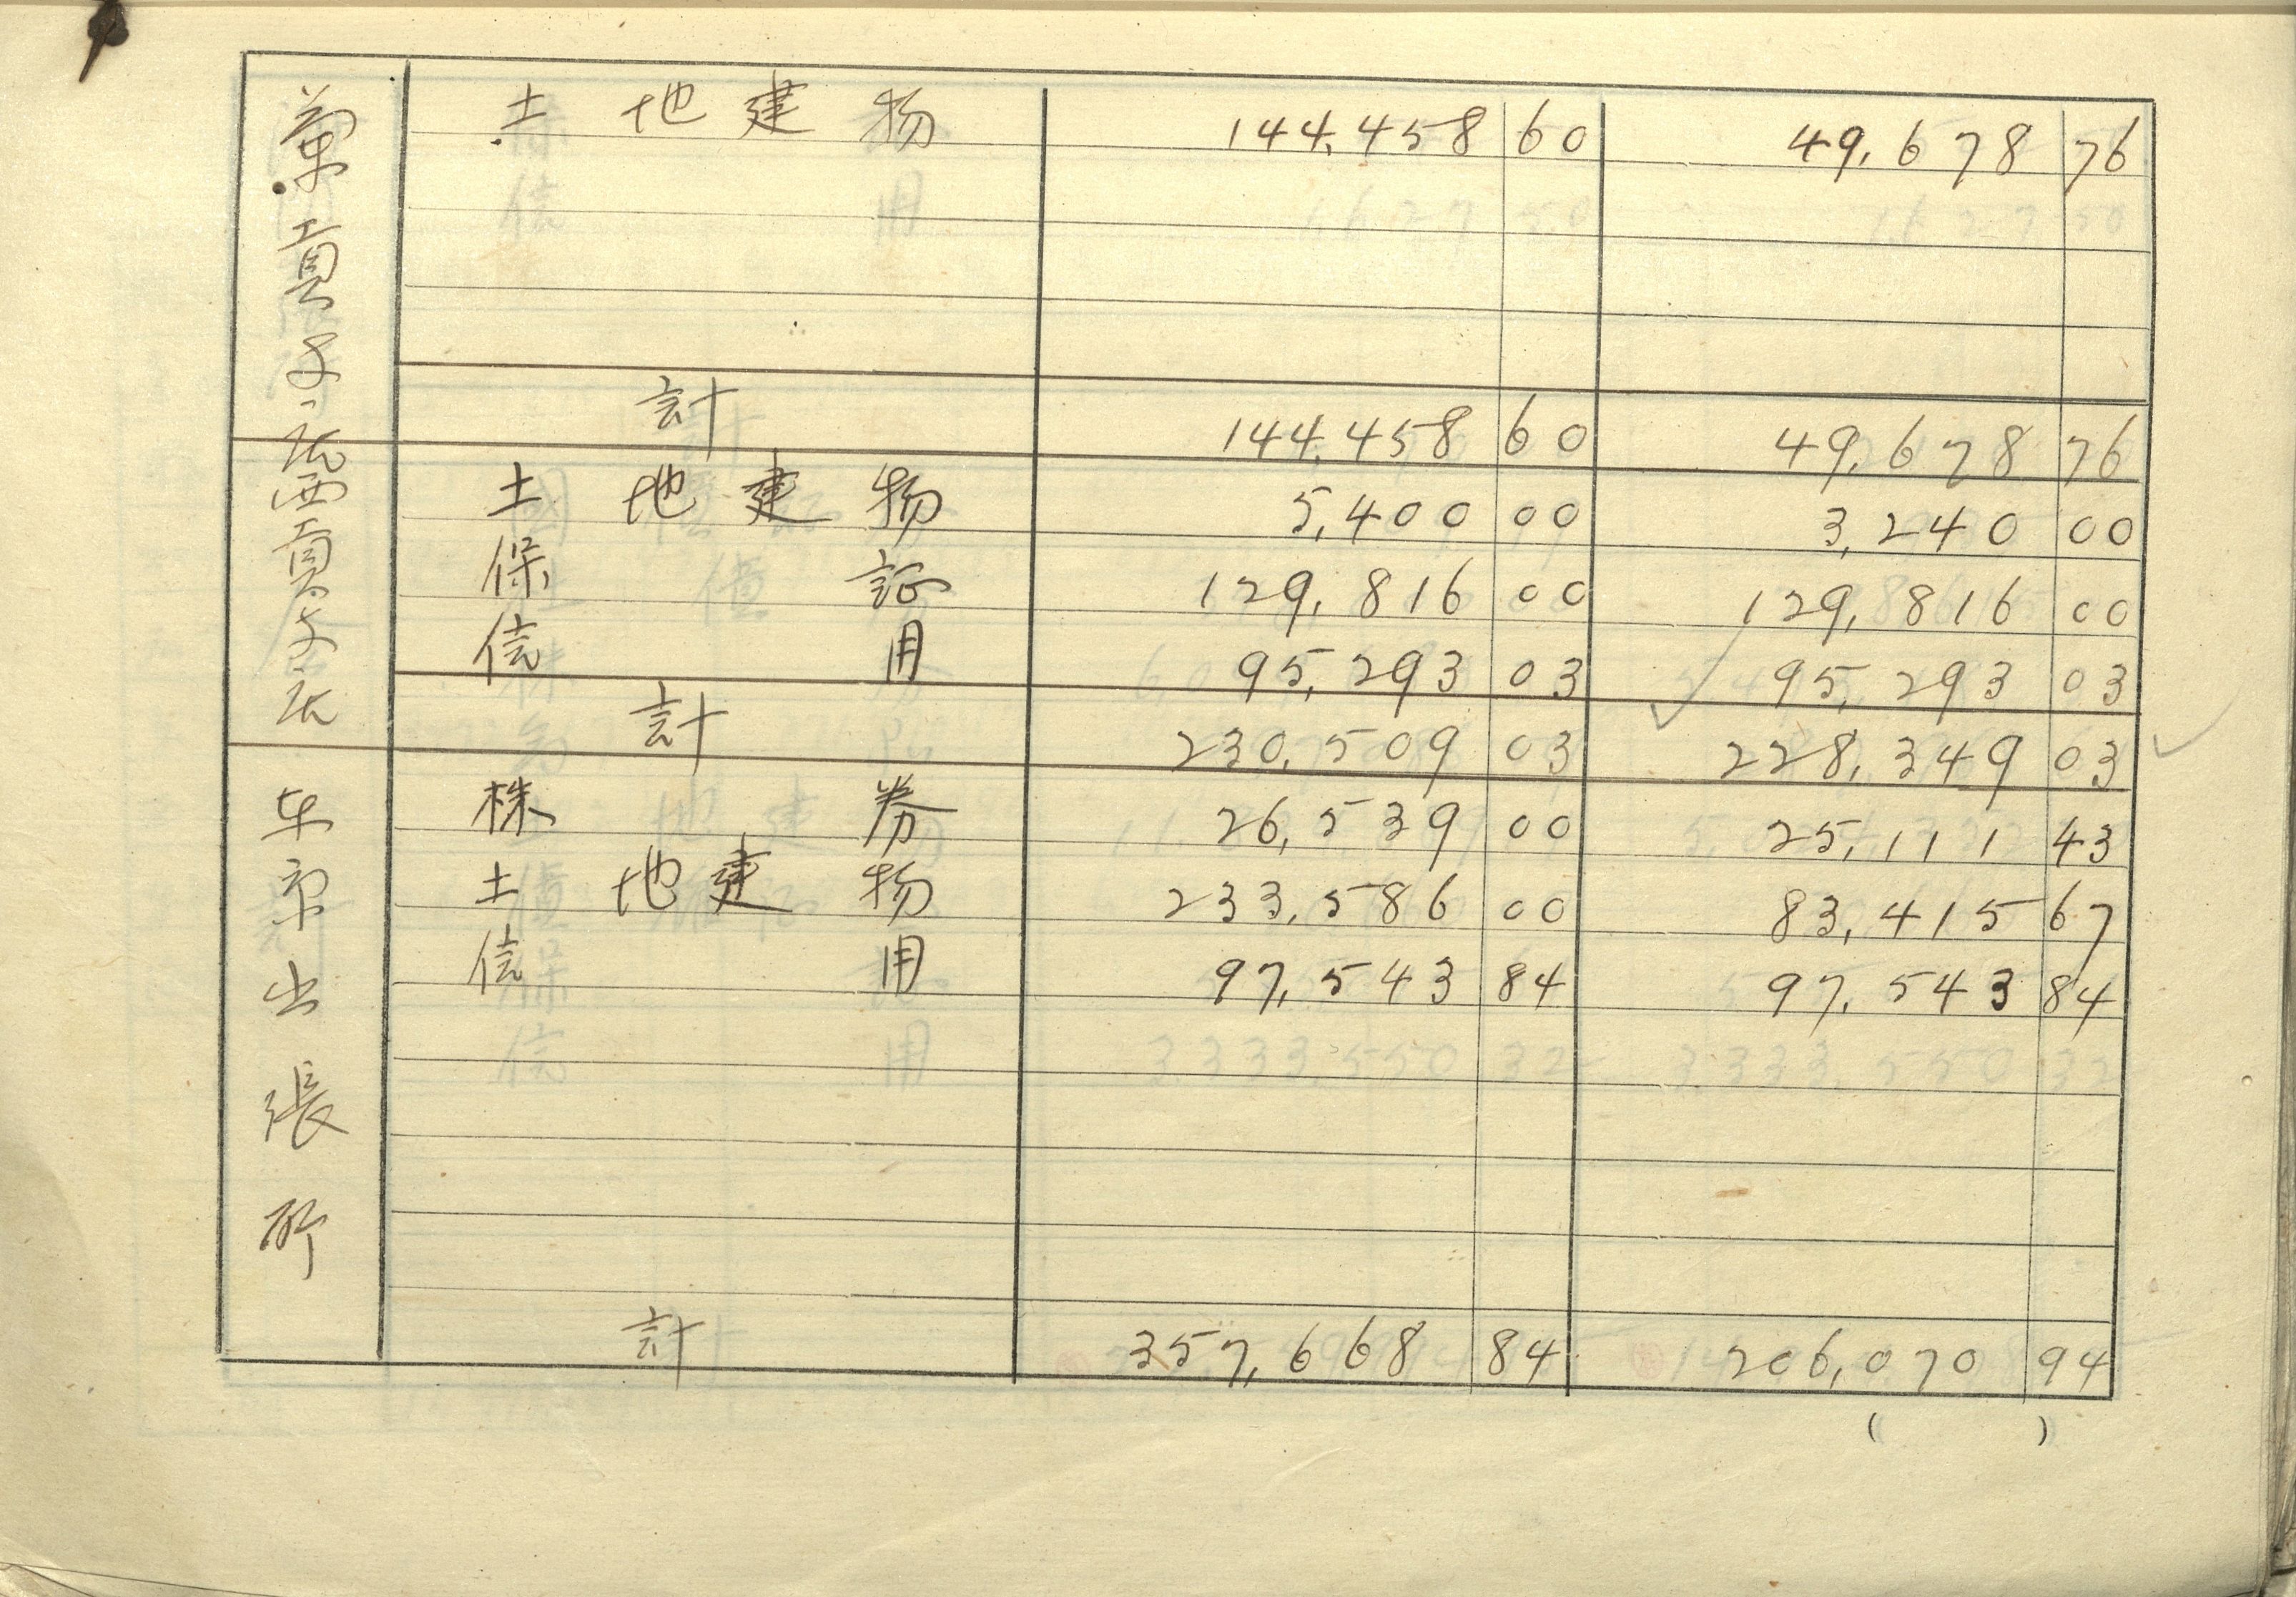 土地建物 144,458 60 49,678 76
計 144,458 60 49,678 76
土地建物 5,400 00 3,240 00
保証 129,816 00 129,816 00
信用 95,293 03 95,293 03
計 230,509 03 228,349 03
株券 26,539 00 25,111 43
土地建物 233,586 00 83,415 67
信用 97,543 84 97,543 84
出張所
計 357,668 84 206,070 94
( )